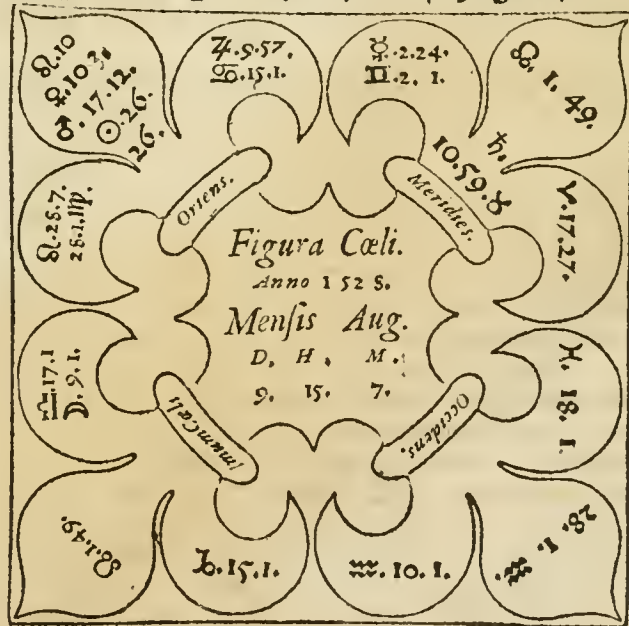 ♌.10
♀.10.3.
♂.17.12.
☉.26.
26.
♃.9.57.
♋.15.1.
☿.2.24.
♊.2. 1.
☊. 1. 49.
♄.
10.59.♉
♈.17.27.
♓. 18. 1
28. 1. ♒.
♒. 10. 1.
♑.15.1.
☋.1.49.
♎.17.1
☽. 9. 1.
♌.28.7.
28.1.♍.
Oriens.
Meridies.
Occidens.
Imumcæli
Figura Cœli.
Anno 1 52 8.
Menſis Aug.
D. H. M.
9. 15. 7.